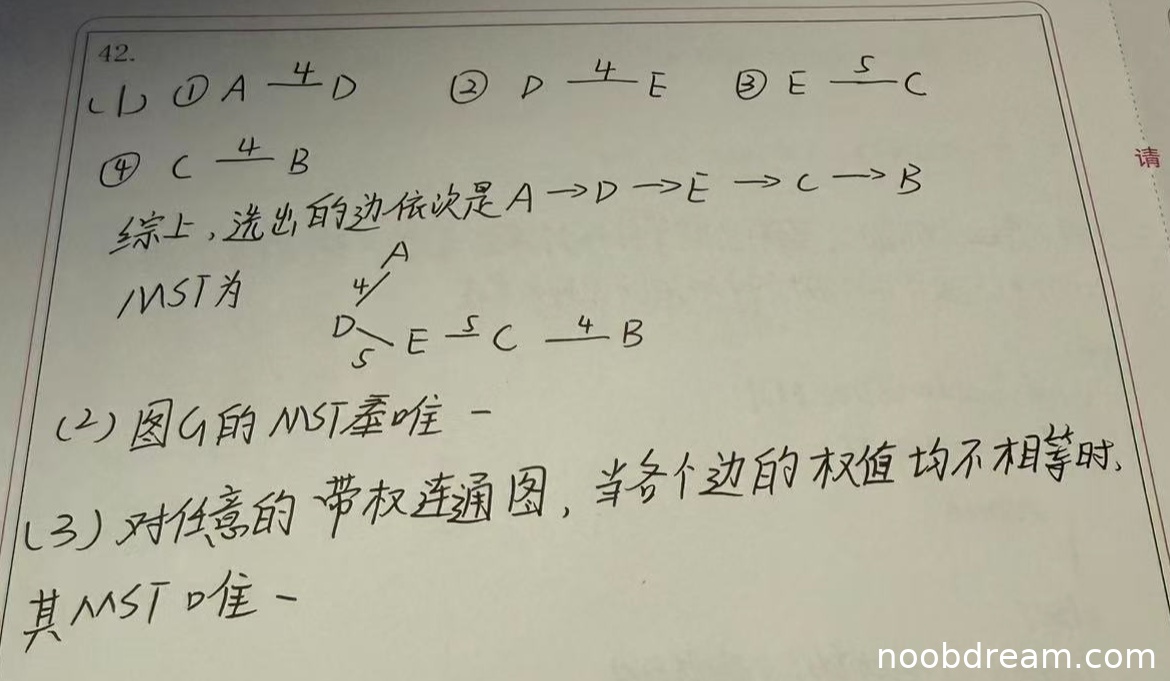 42.
(1) ① A —4— D ② D —4— E ③ E —5— C
④ C —4— B
综上,选出的边依次是A→D→E→C→B
MST为
A
4
D E 5 C 4 B
5
(2)图G的MST唯一
(3)对任意的带权连通图,当各个边的权值均不相等时,
其MST唯一
请
noobdream.com